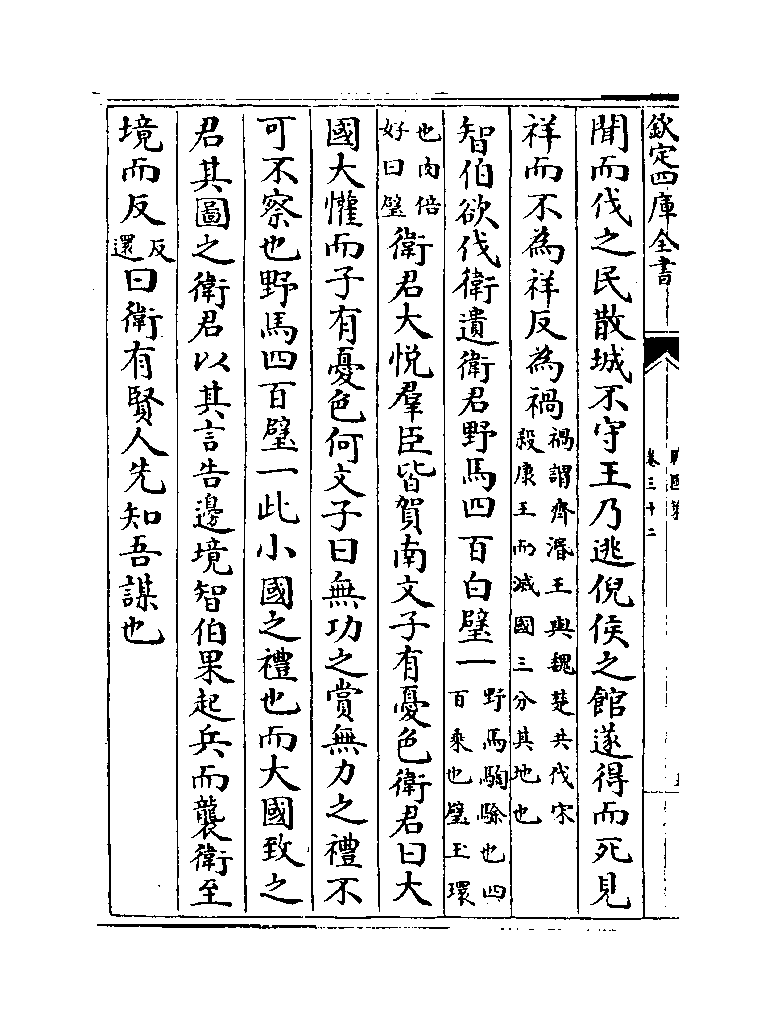 欽定四庫全書
卷三十二
聞而伐之民散城不守王乃逃倪侯之館遂得而死見
祥而不為祥反為禍禍謂齊湣王與魏楚共伐宋殺康王而滅國三分其地也
智伯欲伐衛遺衛君野馬四百白璧一野馬騊駼也四百乘也璧玉環
也肉倍好曰璧衛君大悅羣臣皆賀南文子有憂色衛君曰大
國大懽而子有憂色何文子曰無功之賞無力之禮不
可不察也野馬四百璧一此小國之禮也而大國致之
君其圖之衛君以其言告邊境智伯果起兵而襲衛至
境而反反還曰衛有賢人先知吾謀也